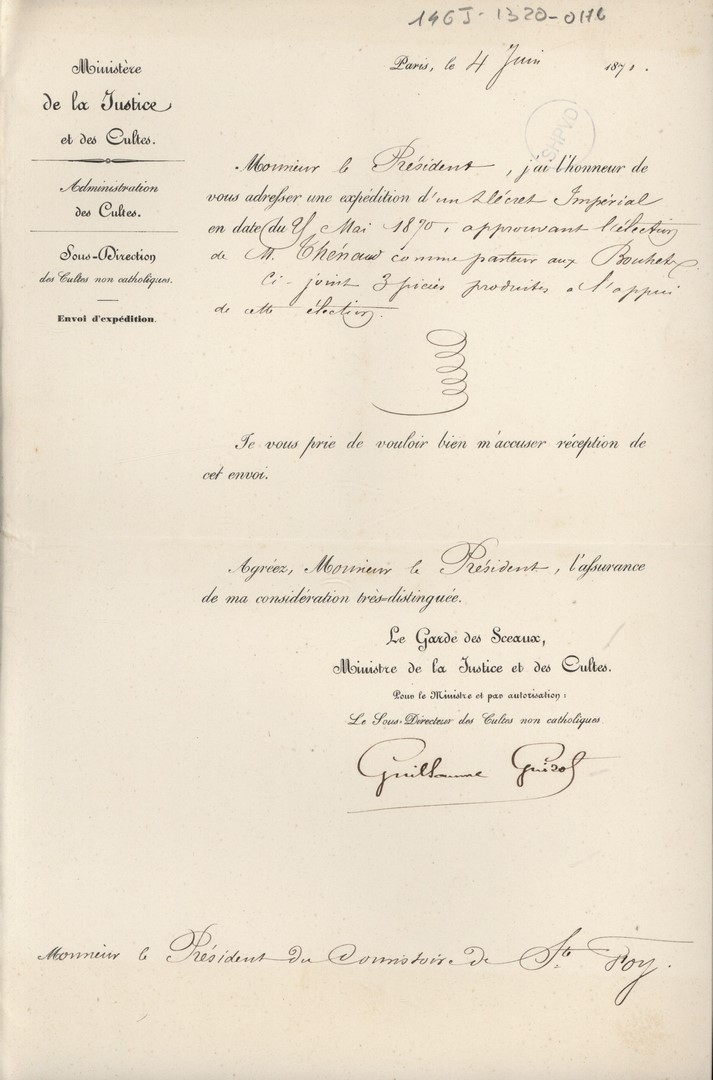 146J-1320-0176
Ministère
de la Justice
et des Cultes.
Administration
des Cultes.
Sous-Direction
des Cultes non catholiques.
Envoi d'expédition.
Paris, le 4 Juin 1870.
SHPVD
Monsieur le Président, j'ai l'honneur de
vous adresser une expédition d'un décret Impérial
en date du Mai 1870, approuvant l'élection
de M. comme pasteur aux Bouhets.
Ci-joint 3 pièces produites à l'appui
de cette élection.
Je vous prie de vouloir bien m'accuser réception de
cet envoi.
Agréez, Monsieur le Président, l'assurance
de ma considération très-distinguée.
Le Garde des Sceaux,
Ministre de la Justice et des Cultes.
Pour le Ministre et par autorisation:
Le Sous-Directeur des Cultes non catholiques
Guillaume Guizot
Monsieur le Président du Consistoire de Ste Foy.